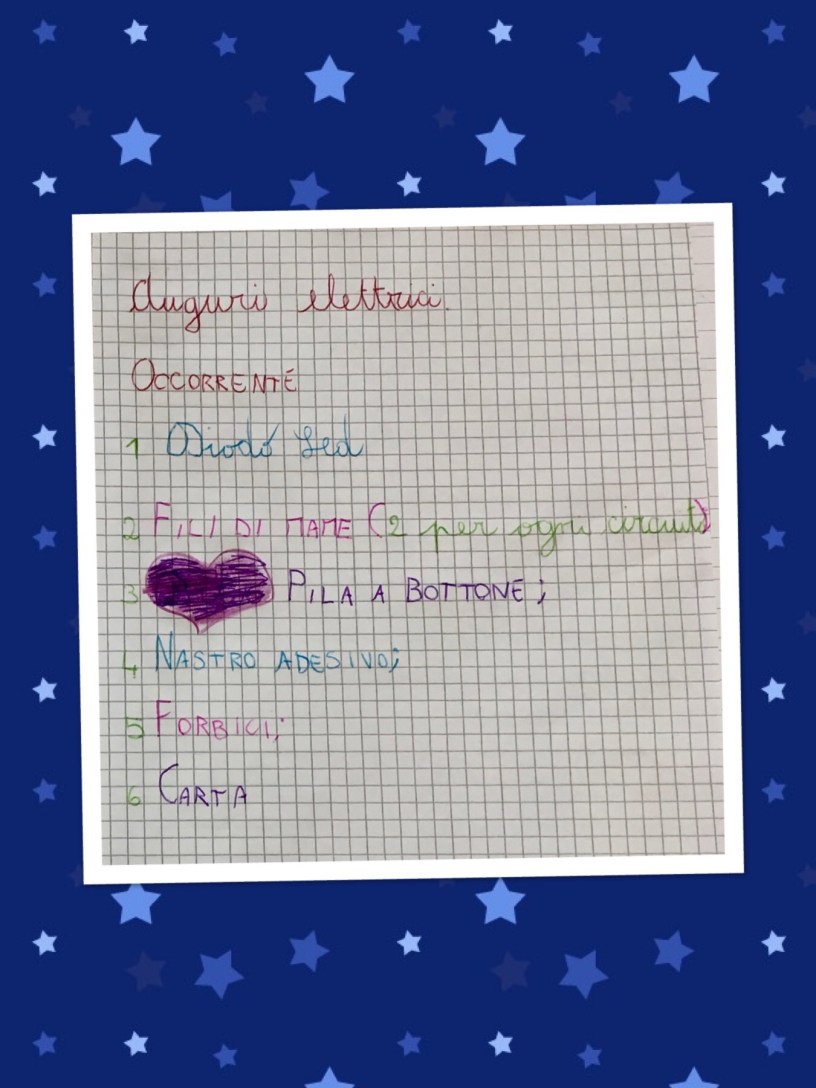 Auguri elettrici.
OCCORRENTE
1 Diodo Led
2 FILI DI RAME (2 per ogni circuito)
3 PILA A BOTTONE;
4 NASTRO ADESIVO;
5 FORBICI;
6 CARTA